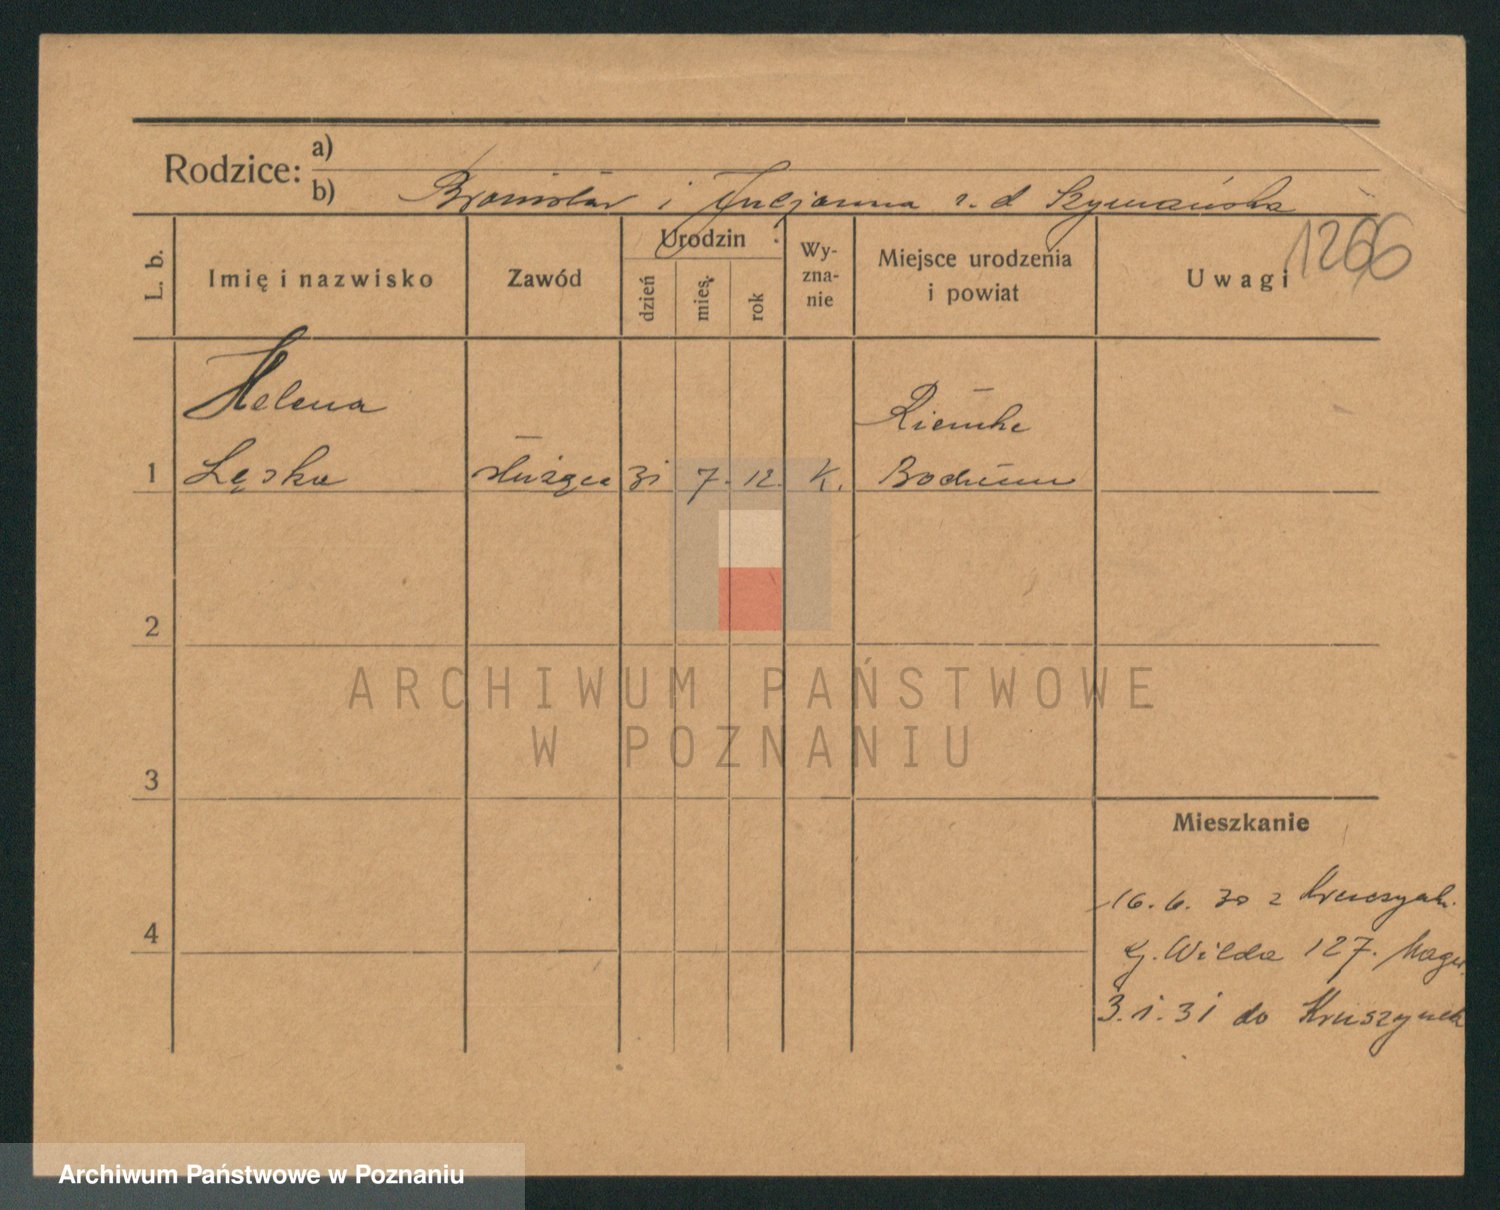 Rodzice: a)
b) Bronisław i Julijanna z. d Szymańska
L. b.
Imię i nazwisko
Zawód
Urodzin
dzień
mies.
rok
Wy-
zna-
nie
Miejsce urodzenia
i powiat
Uwagi
1266
Helena
Riemke
1 Łęska służąca 31 7. 12. K. Bochum
2
3
4
Mieszkanie
16. 6. 30 z
G. Wilda 127.
3. 1. 31 do Kruszynek
ARCHIWUM PAŃSTWOWE
W POZNANIU
Archiwum Państwowe w Poznaniu